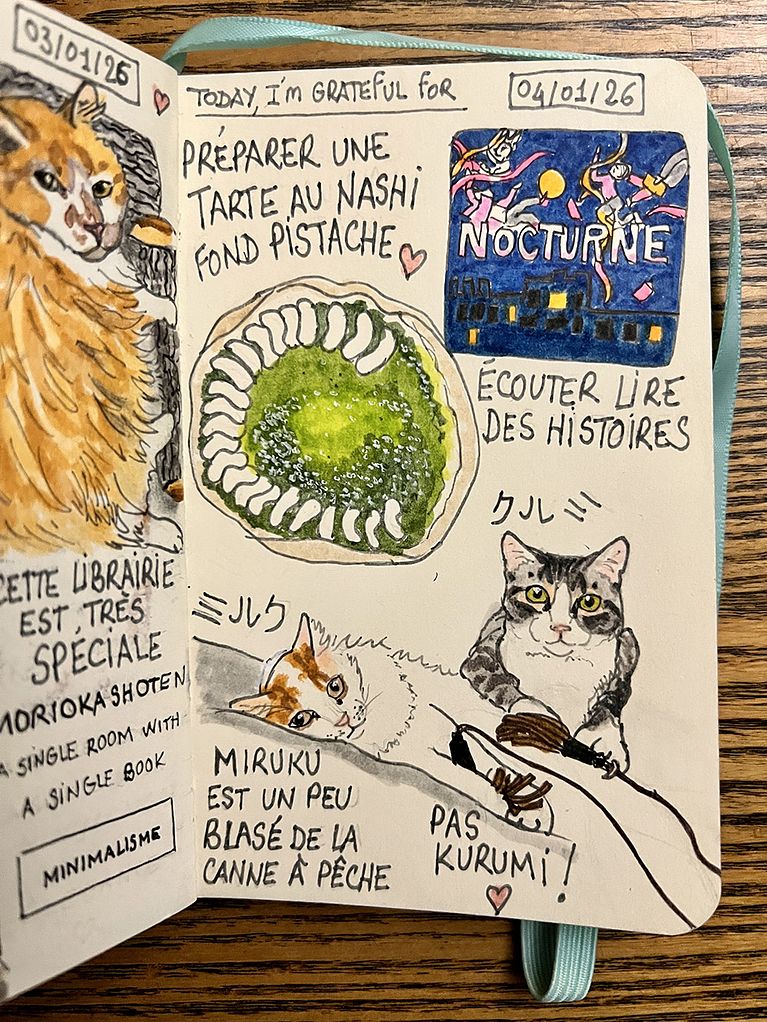 03/01/26
CETTE LIBRAIRIE
EST TRÈS
SPÉCIALE
MORIOKA SHOTEN
A SINGLE ROOM WITH
A SINGLE BOOK
MINIMALISME
TODAY, I'M GRATEFUL FOR
04/01/26
PRÉPARER UNE
TARTE AU NASHI
FOND PISTACHE
NOCTURNE
ÉCOUTER LIRE
DES HISTOIRES
クルミ
ミルク
MIRUKU
EST UN PEU
BLASÉ DE LA
CANNE À PÊCHE
PAS
KURUMI !